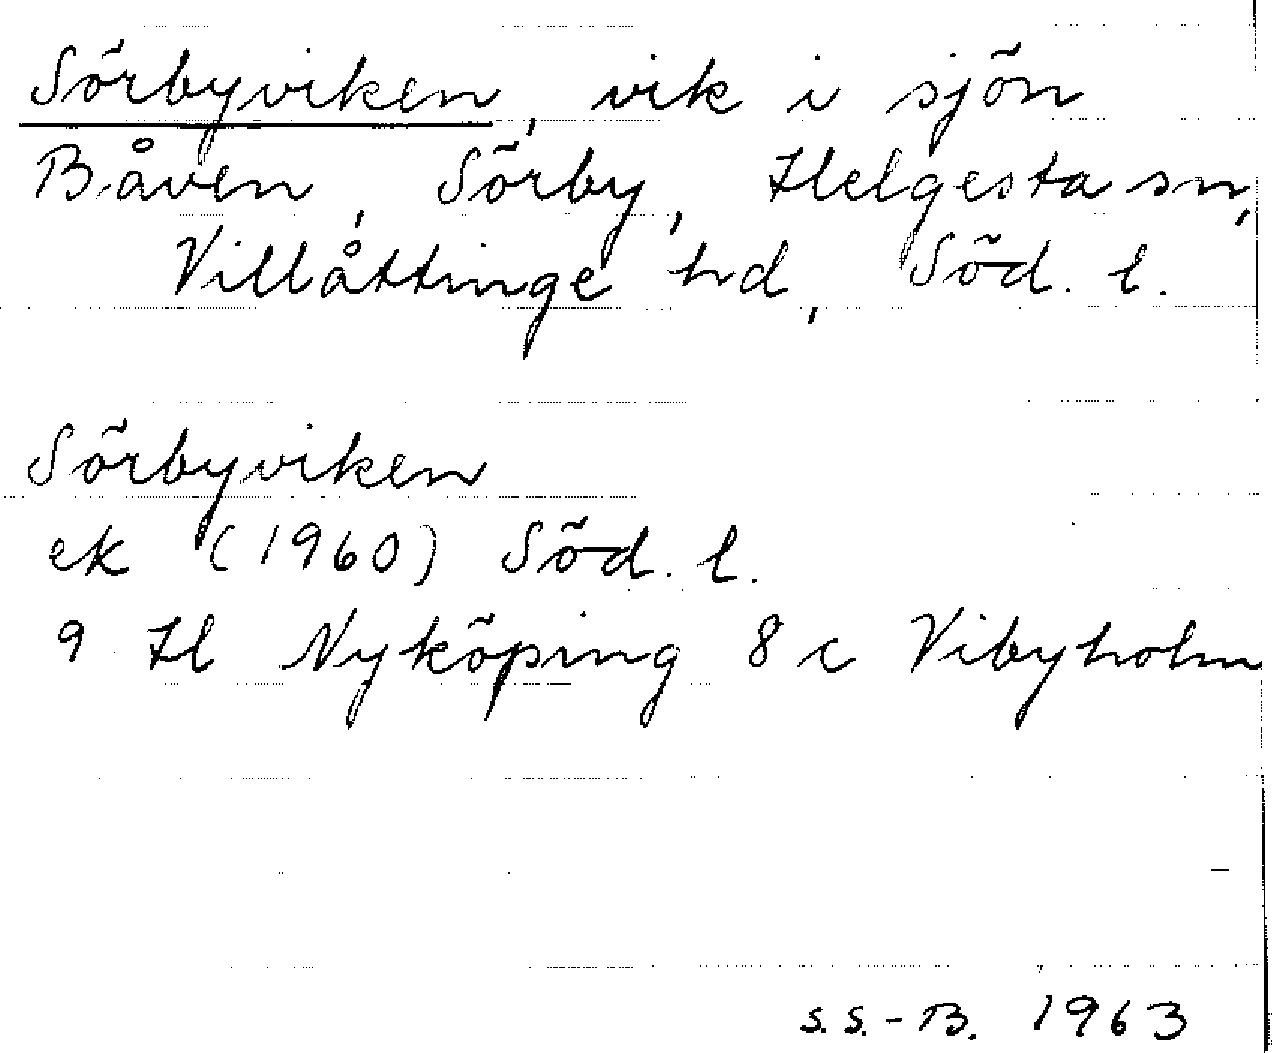 Sörbyviken, vik i sjön
Båven, Sörby, Helgesta sn,
Villåttinge hd, Söd. l.
Sörbyviken
ek (1960) Söd. l.
9 H Nyköping 8 c Vibyholm
S.S.-B. 1963